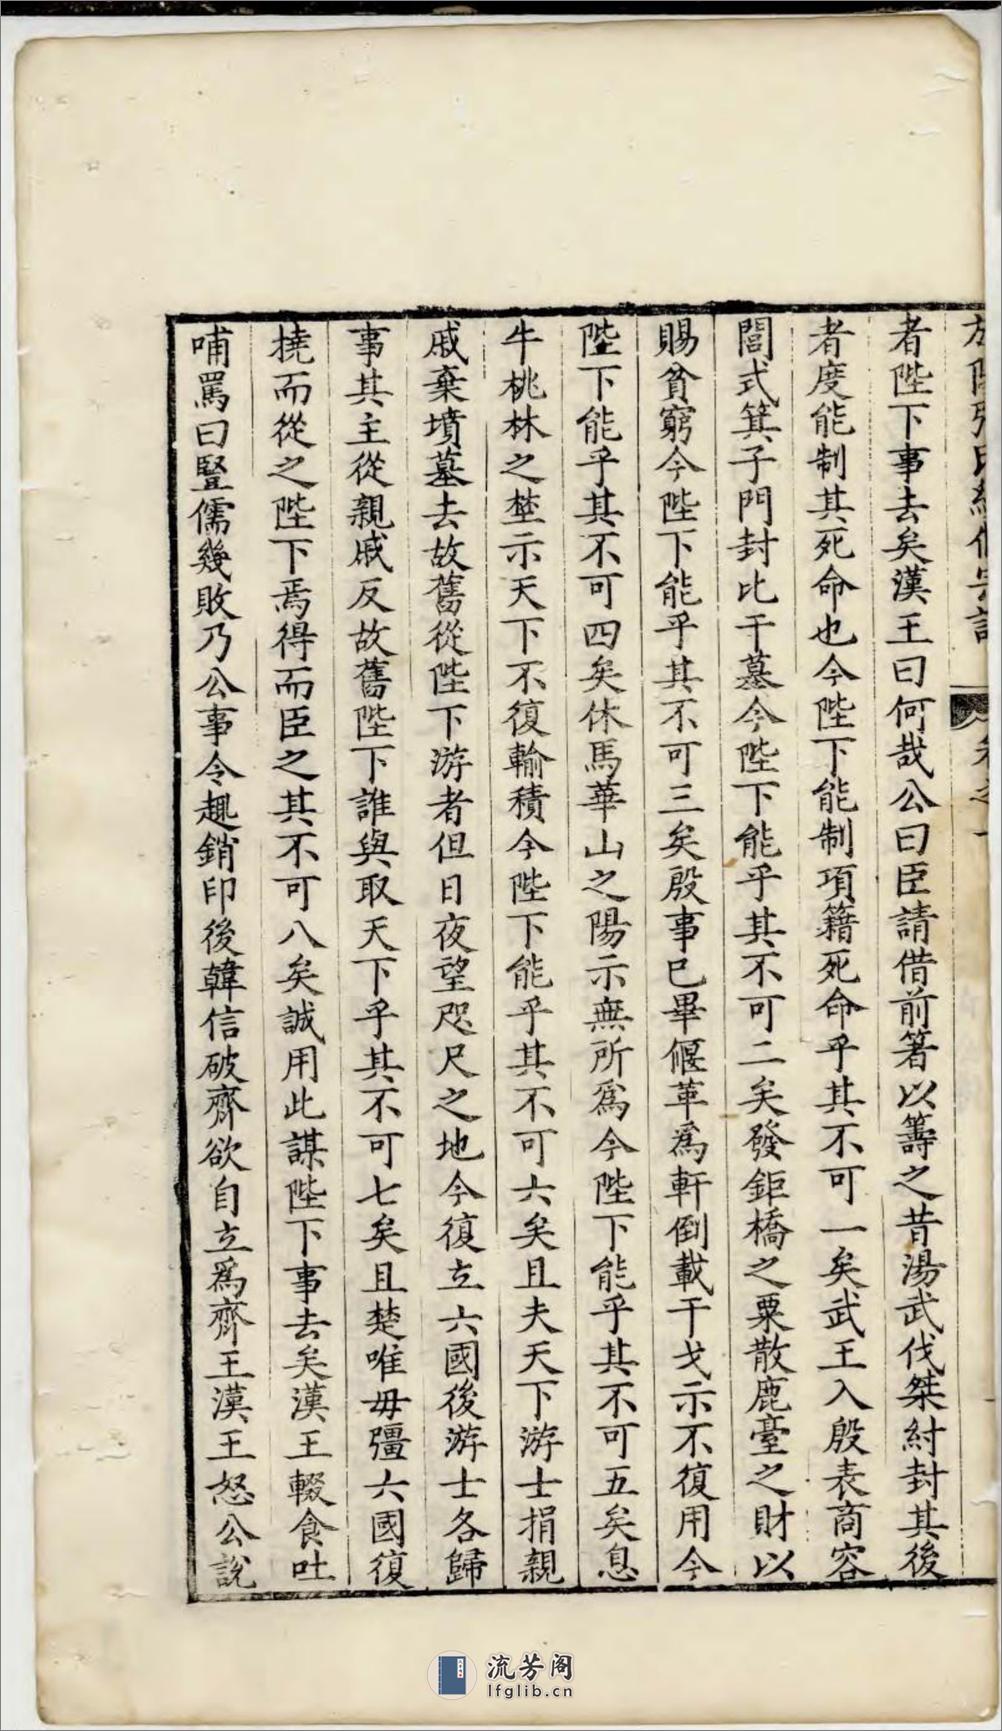 者陛下事去矣漢王曰何哉公曰臣請借前箸以籌之昔湯武伐桀紂封其後
者度能制其死命也今陛下能制項籍死命乎其不可一矣武王入殷表商容
閭式箕子門封比干墓今陛下能乎其不可二矣發鉅橋之粟散鹿臺之財以
賜貧窮今陛下能乎其不可三矣殷事已畢偃革爲軒倒載干戈示不復用今
陛下能乎其不可四矣休馬華山之陽示無所爲今陛下能乎其不可五矣息
牛桃林之埜示天下不復輸積今陛下能乎其不可六矣且夫天下游士捐親
戚棄墳墓去故舊從陛下游者但日夜望咫尺之地今復立六國後游士各歸
事其主從親戚反故舊陛下誰與取天下乎其不可七矣且楚唯毋彊六國復
撓而從之陛下焉得而臣之其不可八矣誠用此謀陛下事去矣漢王輟食吐
哺罵曰豎儒幾敗乃公事令趣銷印後韓信破齊欲自立爲齊王漢王怒公說
流芳阁
lfglib.cn